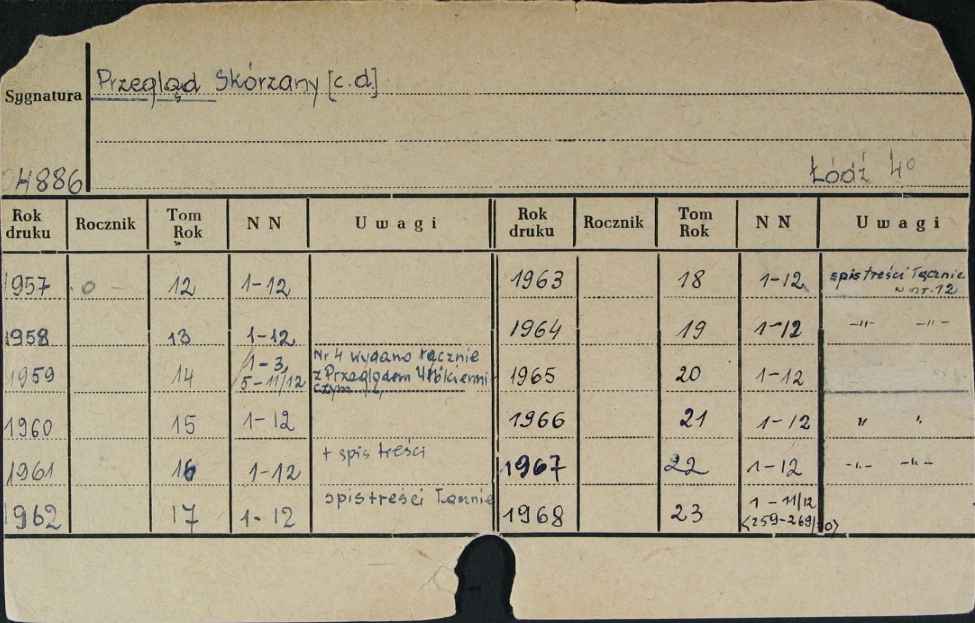 Przegląd Skórzany [c.d.]
Sygnatura
4886
Łódź 4°
Rok druku Rocznik Tom Rok N N Uwagi Rok druku Rocznik Tom Rok N N Uwagi
1957 12 1-12 1963 18 1-12 spis treści łącznie w nr. 12
1958 13 1-12 1964 19 1-12 -"- -"-
1959 14 1-3, 5-11/12 Nr 4 wydano łącznie z Przeglądem Włókienniczym 1965 20 1-12
1960 15 1-12 1966 21 1-12 " "
1961 16 1-12 + spis treści 1967 22 1-12 -"- -"-
1962 17 1-12 spis treści łącznie 1968 23 1-11/12 <259-269/70>